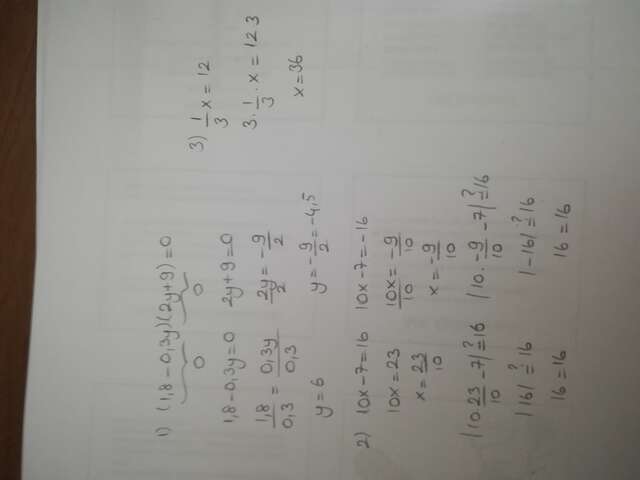 1) (1,8-0,3y)(2y+9)=0
0 0
1,8-0,3y=0 2y+9=0
1,8/0,3 = 0,3y/0,3 2y/2 = -9/2
y=6 y=-9/2=-4,5
2) 10x-7=16 10x-7=-16
10x=23 10x/10 = -9/10
x=23/10 x=-9/10
|10 23/10 -7| ?= 16 |10·-9/10 -7| ?= 16
|16| ?= 16 |-16| ?= 16
16=16 16=16
3) 1/3 x=12
3·1/3·x=12 3
x=36